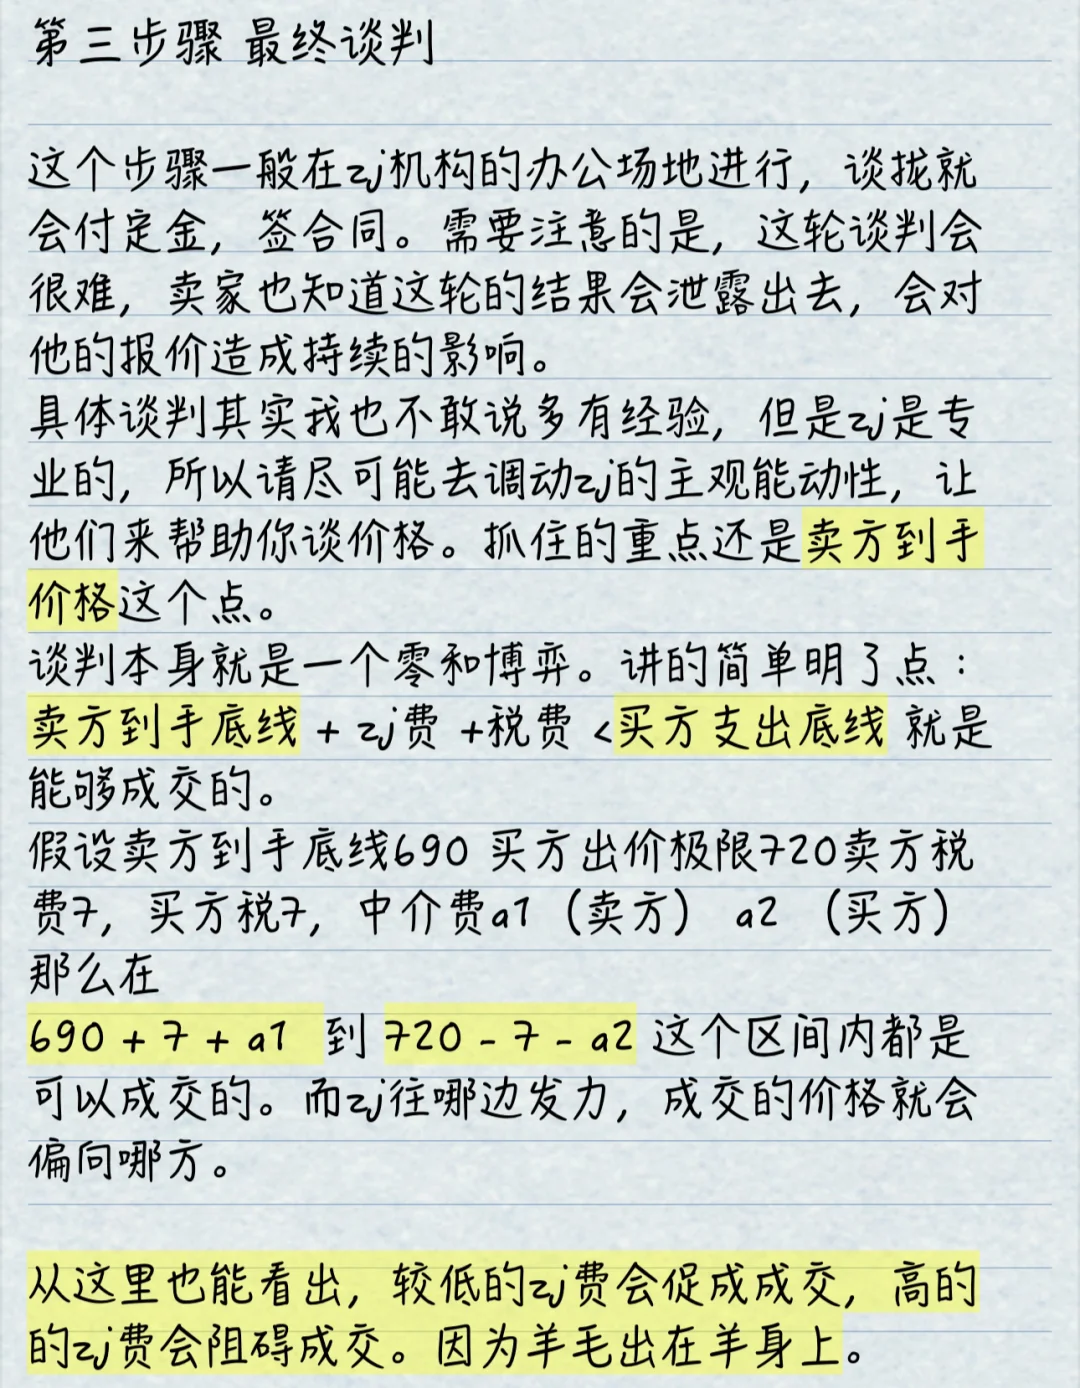 第三步骤 最终谈判
这个步骤一般在zj机构的办公场地进行，谈拢就
会付定金，签合同。需要注意的是，这轮谈判会
很难，卖家也知道这轮的结果会泄露出去，会对
他的报价造成持续的影响。
具体谈判其实我也不敢说多有经验，但是zj是专
业的，所以请尽可能去调动zj的主观能动性，让
他们来帮助你谈价格。抓住的重点还是卖方到手
价格这个点。
谈判本身就是一个零和博弈。讲的简单明了点：
卖方到手底线 + zj费 +税费 <买方支出底线 就是
能够成交的。
假设卖方到手底线690 买方出价极限720卖方税
费7，买方税7，中介费a1（卖方） a2 （买方）
那么在
690 + 7 + a1 到 720 - 7 - a2 这个区间内都是
可以成交的。而zj往哪边发力，成交的价格就会
偏向哪方。
从这里也能看出，较低的zj费会促成成交，高的
的zj费会阻碍成交。因为羊毛出在羊身上。